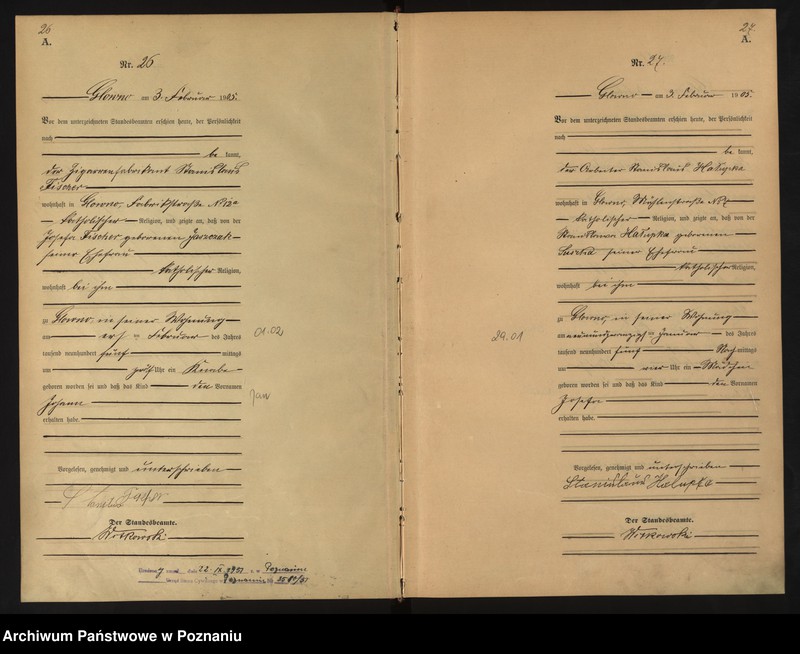 26
A.
Nr. 26
Glowno am 3. Februar 1905.
Vor dem unterzeichneten Standesbeamten erschien heute, der Persönlichkeit
nach
be kannt,
der Zigarrenfabrikant Stanislaus
Fischer
wohnhaft in Glowno, Fabrikstraße No 12a
katholischer Religion, und zeigte an, daß von der
Josefa Fischer geborenen
seiner Ehefrau
katholischer Religion,
wohnhaft bei ihm
zu Glowno, in seiner Wohnung
am ersten Februar des Jahres
tausend neunhundert fünf mittags
um Uhr ein Knabe
geboren worden sei und daß das Kind den Vornamen
Johann
erhalten habe.
Vorgelesen, genehmigt und unterschrieben
Der Standesbeamte.
Witkowski
01.02
Jan
22. IX 1951 Poznaniu
Poznaniu
27.
A.
Nr. 27.
Glowno am 3. Februar 1905.
Vor dem unterzeichneten Standesbeamten erschien heute, der Persönlichkeit
nach
be kannt,
der Arbeiter Stanislaus Halupka
wohnhaft in Glowno, Mühlenstraße No
katholischer Religion, und zeigte an, daß von der
Stanislawa Halupka geborenen
seiner Ehefrau
katholischer Religion,
wohnhaft bei ihm
zu Glowno, in seiner Wohnung
am neunundzwanzigsten Januar des Jahres
tausend neunhundert fünf Nachmittags
um vier Uhr ein Mädchen
geboren worden sei und daß das Kind den Vornamen
Josefa
erhalten habe.
Vorgelesen, genehmigt und unterschrieben
Stanislaus Halupka
Der Standesbeamte.
Witkowski
29.01
Archiwum Państwowe w Poznaniu